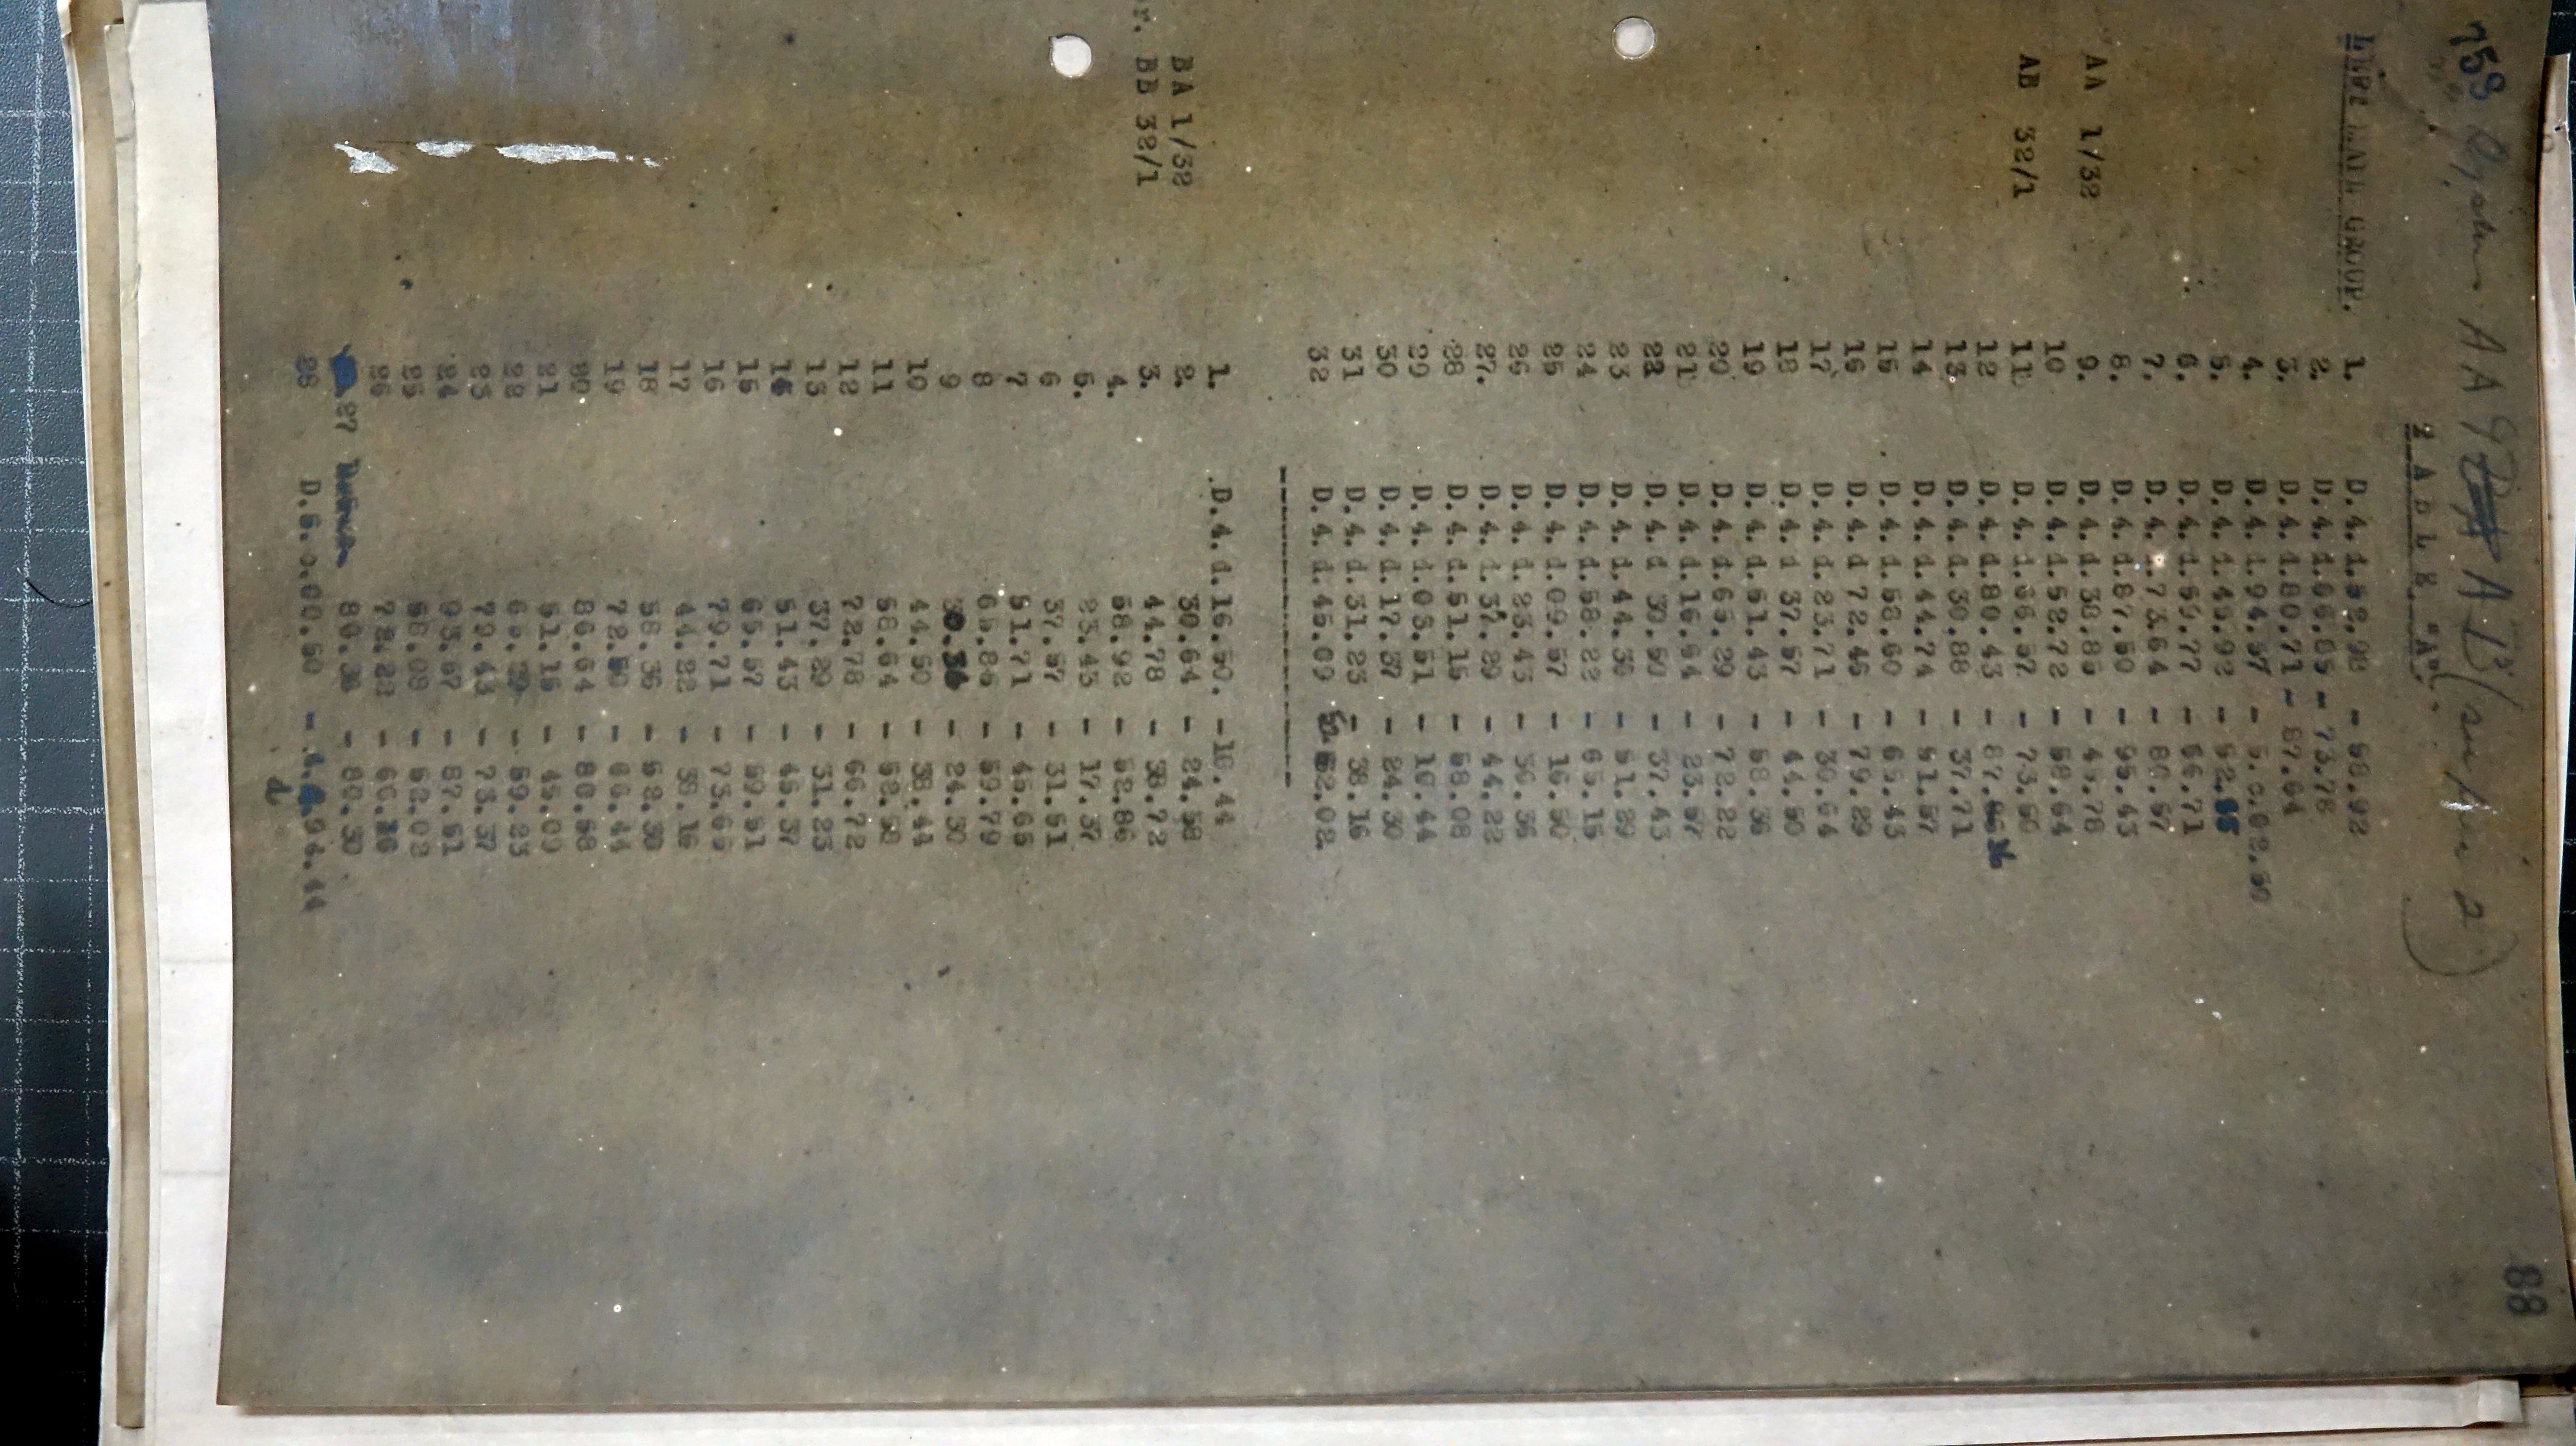 88
AA
AB
TABLE "A".
GROUP.
1. D.4.d.52.98 - 58.92
2. D.4.d.66.85 - 73.78
3. D.4.d.80.71 - 87.64
4. D.4.d.94.57 - 5.c.02.50
5. D.4.d.45.92 - 52.85
6. D.4.d.59.77 - 66.71
7. D.4.d.73.64 - 80.57
8. D.4.d.87.50 - 95.43
AA 1/32 9. D.4.d.38.85 - 45.78
10 D.4.d.52.72 - 58.64
AB 32/1 11 D.4.d.66.57 - 73.50
12 D.4.d.80.43 - 87.
13 D.4.d.30.88 - 37.71
14 D.4.d.44.74 - 51.67
15 D.4.d.58.60 - 65.43
16 D.4.d 72.46 - 79.29
17 D.4.d.23.71 - 30.64
18 D.4.d 37.57 - 44.50
19 D.4.d.51.43 - 58.36
20 D.4.d.65.29 - 72.22
21 D.4.d.16.64 - 23.57
22 D.4.d 30.50 - 37.43
23 D.4.d.44.36 - 51.29
24 D.4.d.58.22 - 65.15
25 D.4.d.09.57 - 16.50
26 D.4.d.23.43 - 30.36
27. D.4.d.37.29 - 44.22
28 D.4.d.51.15 - 58.08
29 D.4.d.03.51 - 10.44
30 D.4.d.17.37 - 24.30
31 D.4.d.31.23 - 38.16
32 D.4.d.45.09 52.02
1. D.4.d.16.50. - 10.44
BA 1/32 2. 30.64 - 24.58
BB 32/1 3. 44.78 - 38.72
4. 58.92 - 52.86
5. 23.43 - 17.37
6 37.57 - 31.51
7 51.71 - 45.65
8 65.85 - 59.79
9 30.36 - 24.30
10 44.50 - 38.44
11 58.64 - 52.58
12 72.78 - 66.72
13 37.29 - 31.23
14 51.43 - 45.37
15 65.57 - 59.51
16 79.71 - 73.65
17 44.22 - 38.16
18 58.36 - 52.30
19 72.50 - 66.44
20 86.64 - 80.58
21 51.15 - 45.09
22 65.29 - 59.23
23 79.43 - 73.37
24 93.57 - 87.51
25 58.08 - 52.02
26 72.22 - 66.16
27 86.36 - 80.30
28 D.5.c.00.50 - 4.d.94.44
d